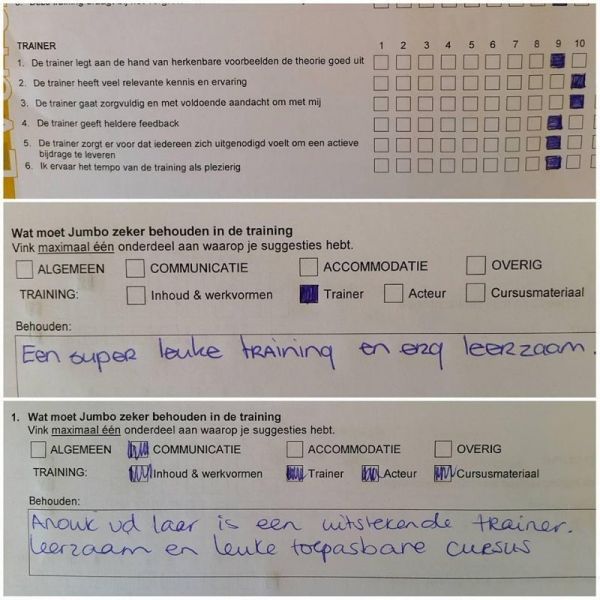 TRAINER 1 2 3 4 5 6 7 8 9 10
1. De trainer legt aan de hand van herkenbare voorbeelden de theorie goed uit
2. De trainer heeft veel relevante kennis en ervaring
3. De trainer gaat zorgvuldig en met voldoende aandacht om met mij
4. De trainer geeft heldere feedback
5. De trainer zorgt er voor dat iedereen zich uitgenodigd voelt om een actieve
bijdrage te leveren
6. Ik ervaar het tempo van de training als plezierig
Wat moet Jumbo zeker behouden in de training
Vink maximaal één onderdeel aan waarop je suggesties hebt.
ALGEMEEN COMMUNICATIE ACCOMMODATIE OVERIG
TRAINING: Inhoud & werkvormen Trainer Acteur Cursusmateriaal
Behouden:
Een super leuke training en erg leerzaam.
1. Wat moet Jumbo zeker behouden in de training
Vink maximaal één onderdeel aan waarop je suggesties hebt.
ALGEMEEN COMMUNICATIE ACCOMMODATIE OVERIG
TRAINING: Inhoud & werkvormen Trainer Acteur Cursusmateriaal
Behouden:
Anouk vd laar is een uitstekende trainer.
leerzaam en leuke toepasbare cursus